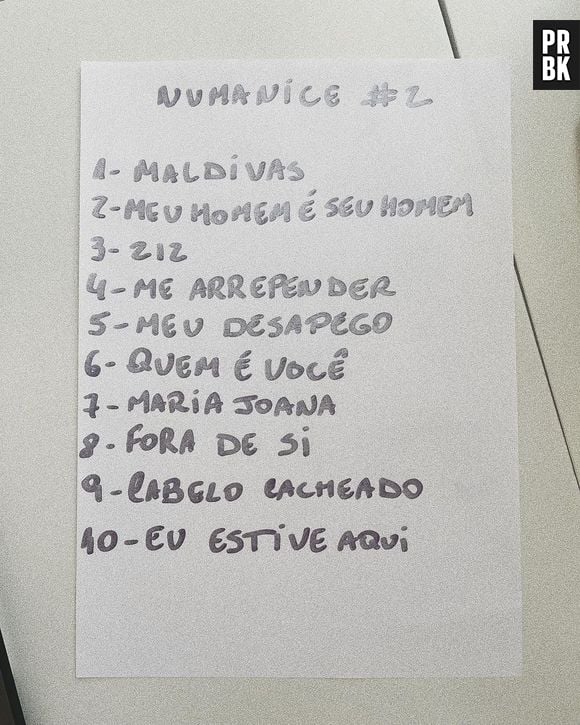 PR
BK
NUMANICE #2
1- MALDIVAS
2- MEU HOMEM É SEU HOMEM
3- 212
4- ME ARREPENDER
5- MEU DESAPEGO
6- QUEM É VOCÊ
7- MARIA JOANA
8- FORA DE SI
9- CABELO CACHEADO
10- EU ESTIVE AQUI